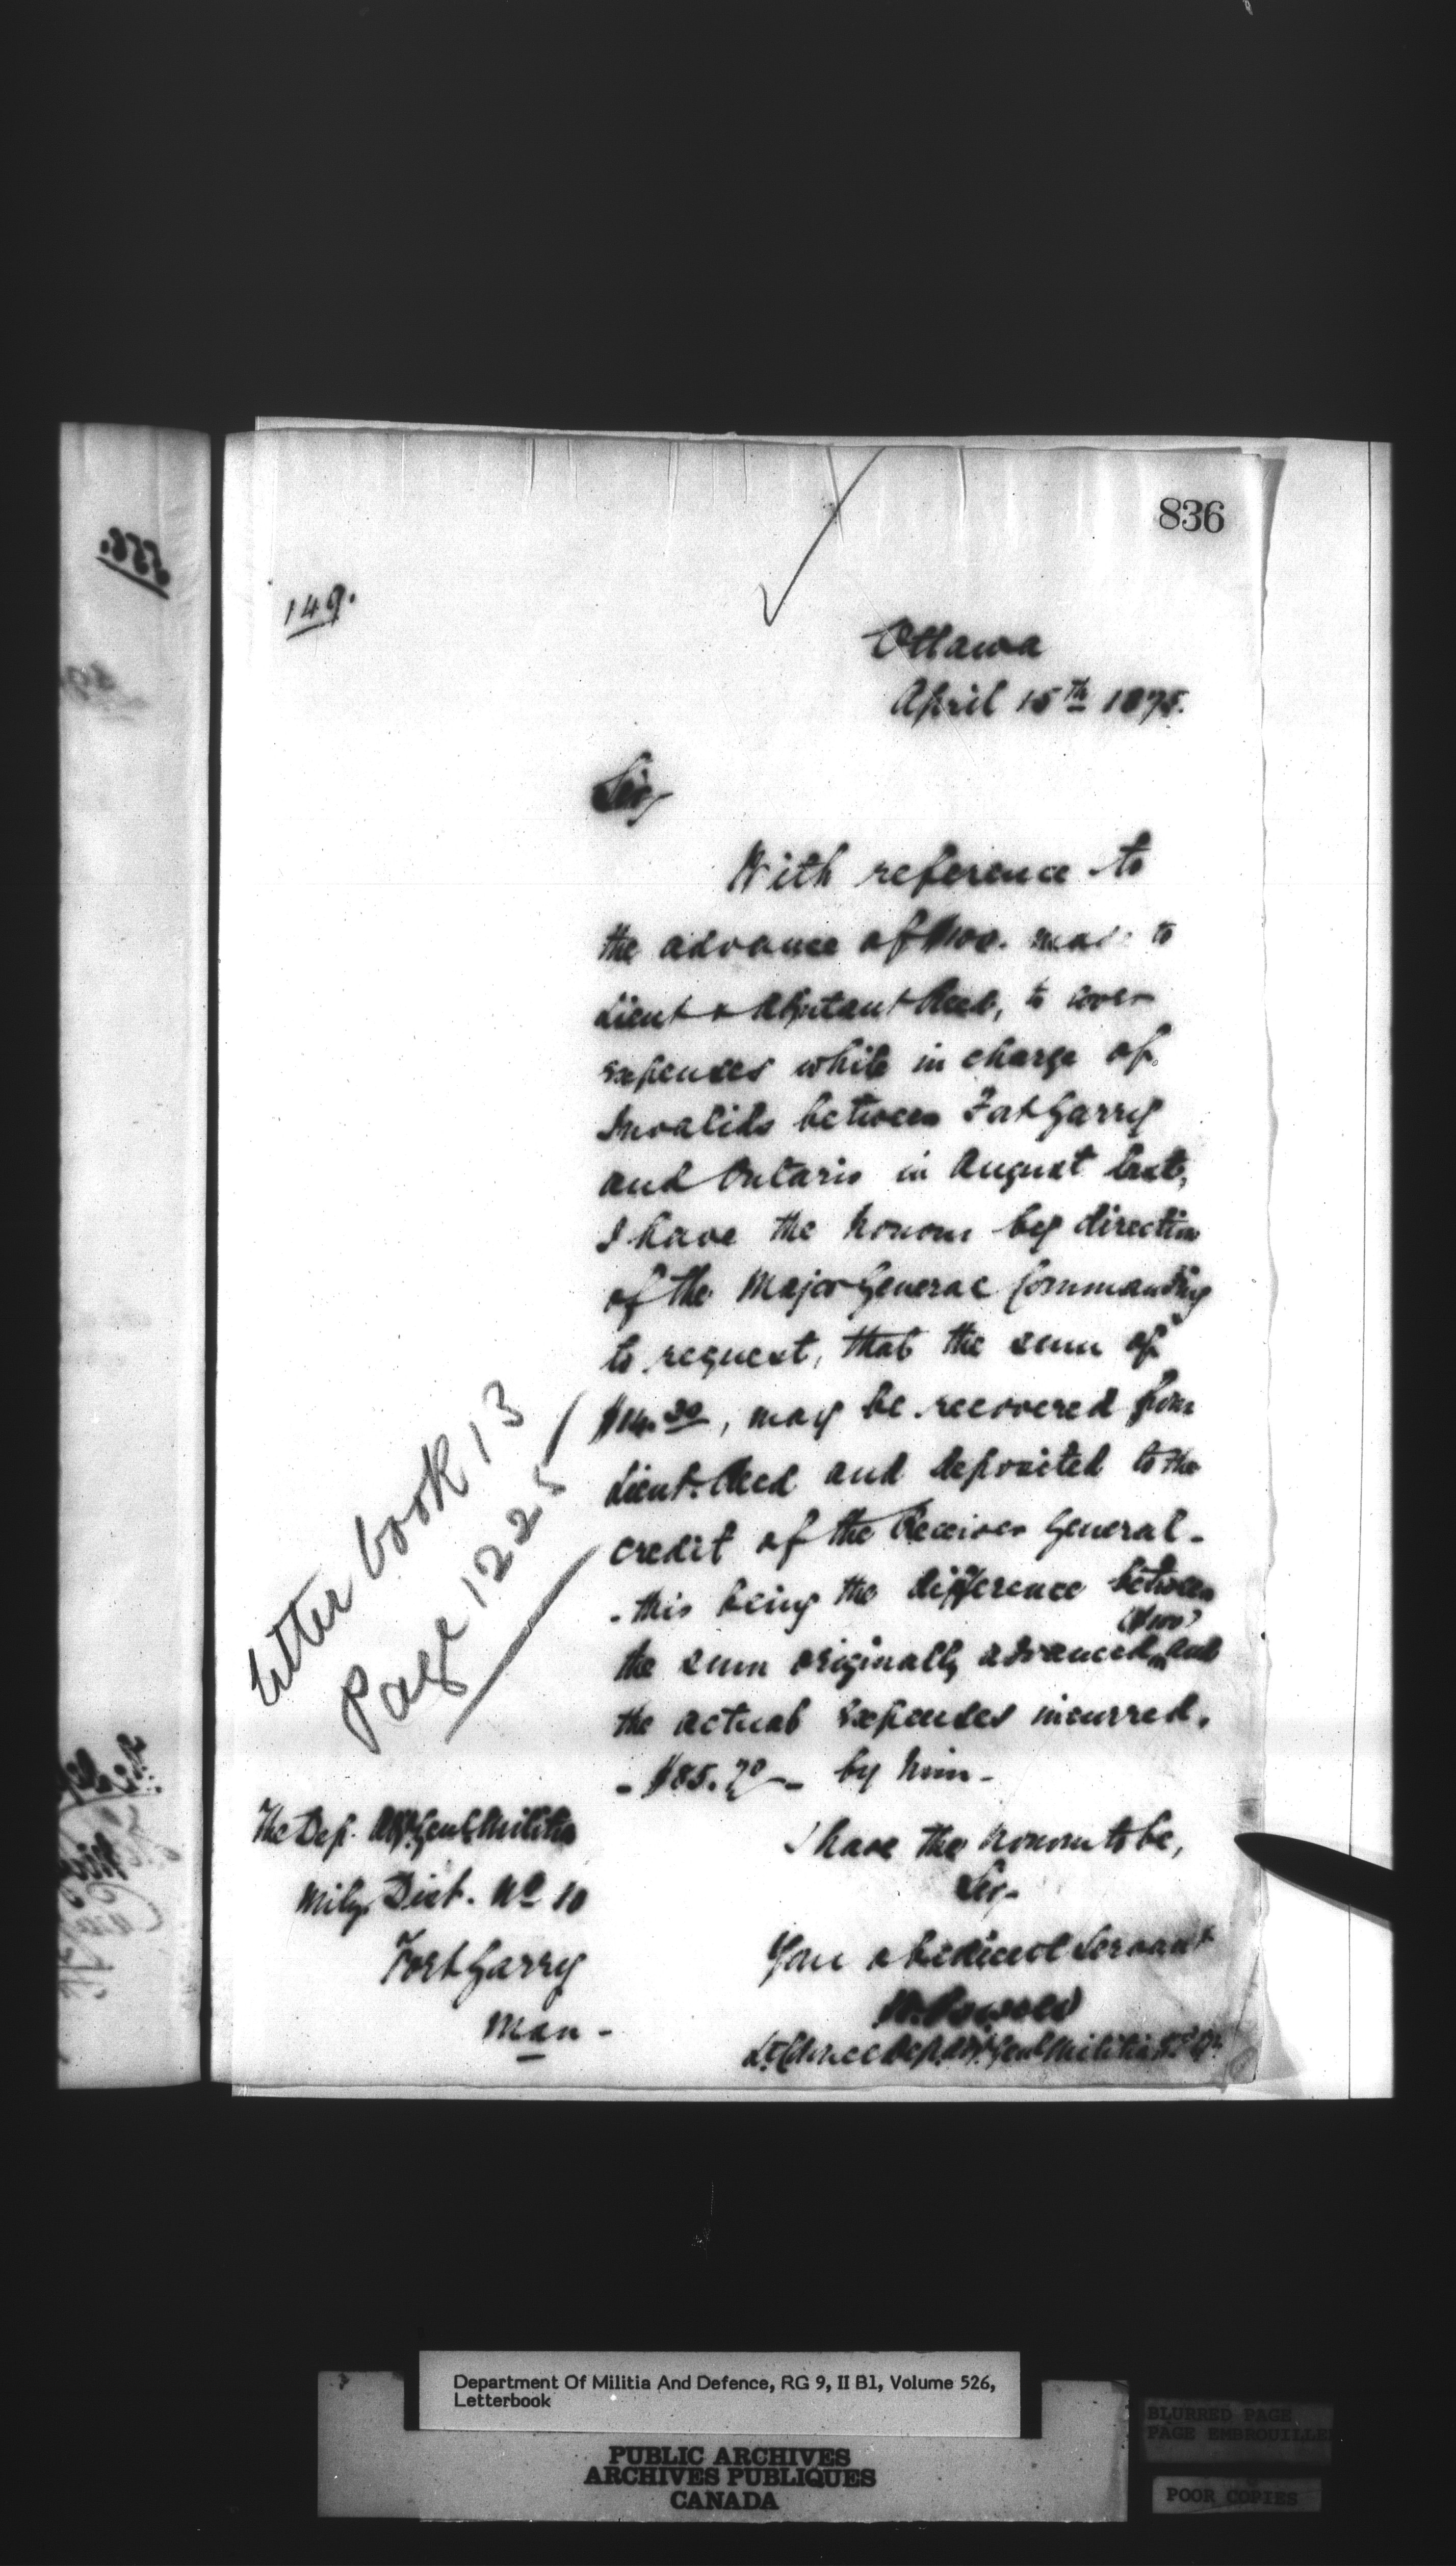 836
149.
Ottawa
April 15th 1875.
Sir,
With reference to
the advance of $100. made to
Lieut & Adjutant Reed, to cover
expenses while in charge of
Invalids between Fort Garry
and Ontario in August last,
I have the honour by direction
of the Major General Commanding
to request, that the sum of
$14.30, may be recovered from
Lieut. Reed and deposited to the
credit of the Receiver General -
- this being the difference between
($100)
the sum originally advanced, and
the actual expenses incurred.
- $85.70 - by him -
I have the honour to be,
Sir -
Your obedient Servant
W. Powell
Lt Colonel Dep. Adjt Genl Militia
The Dep. Adjt. Genl Militia
Mily. Dist. No 10
Fort Garry
Man -
Letter book 13
Page 1225
Department Of Militia And Defence, RG 9, II B1, Volume 526,
Letterbook
PUBLIC ARCHIVES
ARCHIVES PUBLIQUES
CANADA
BLURRED PAGE
PAGE EMBROUILLEE
POOR COPIES